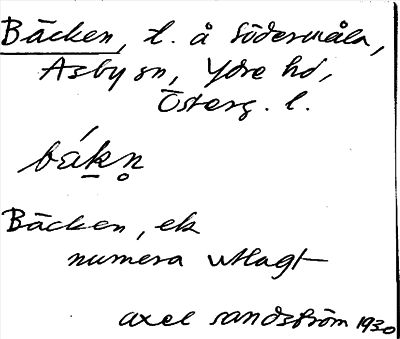 Bäcken, t. å Södermåla,
Asby sn, Ydre hd,
Österg. l.
bákn̥
Bäcken, ek
numera utlagt
Axel Sandström 1930